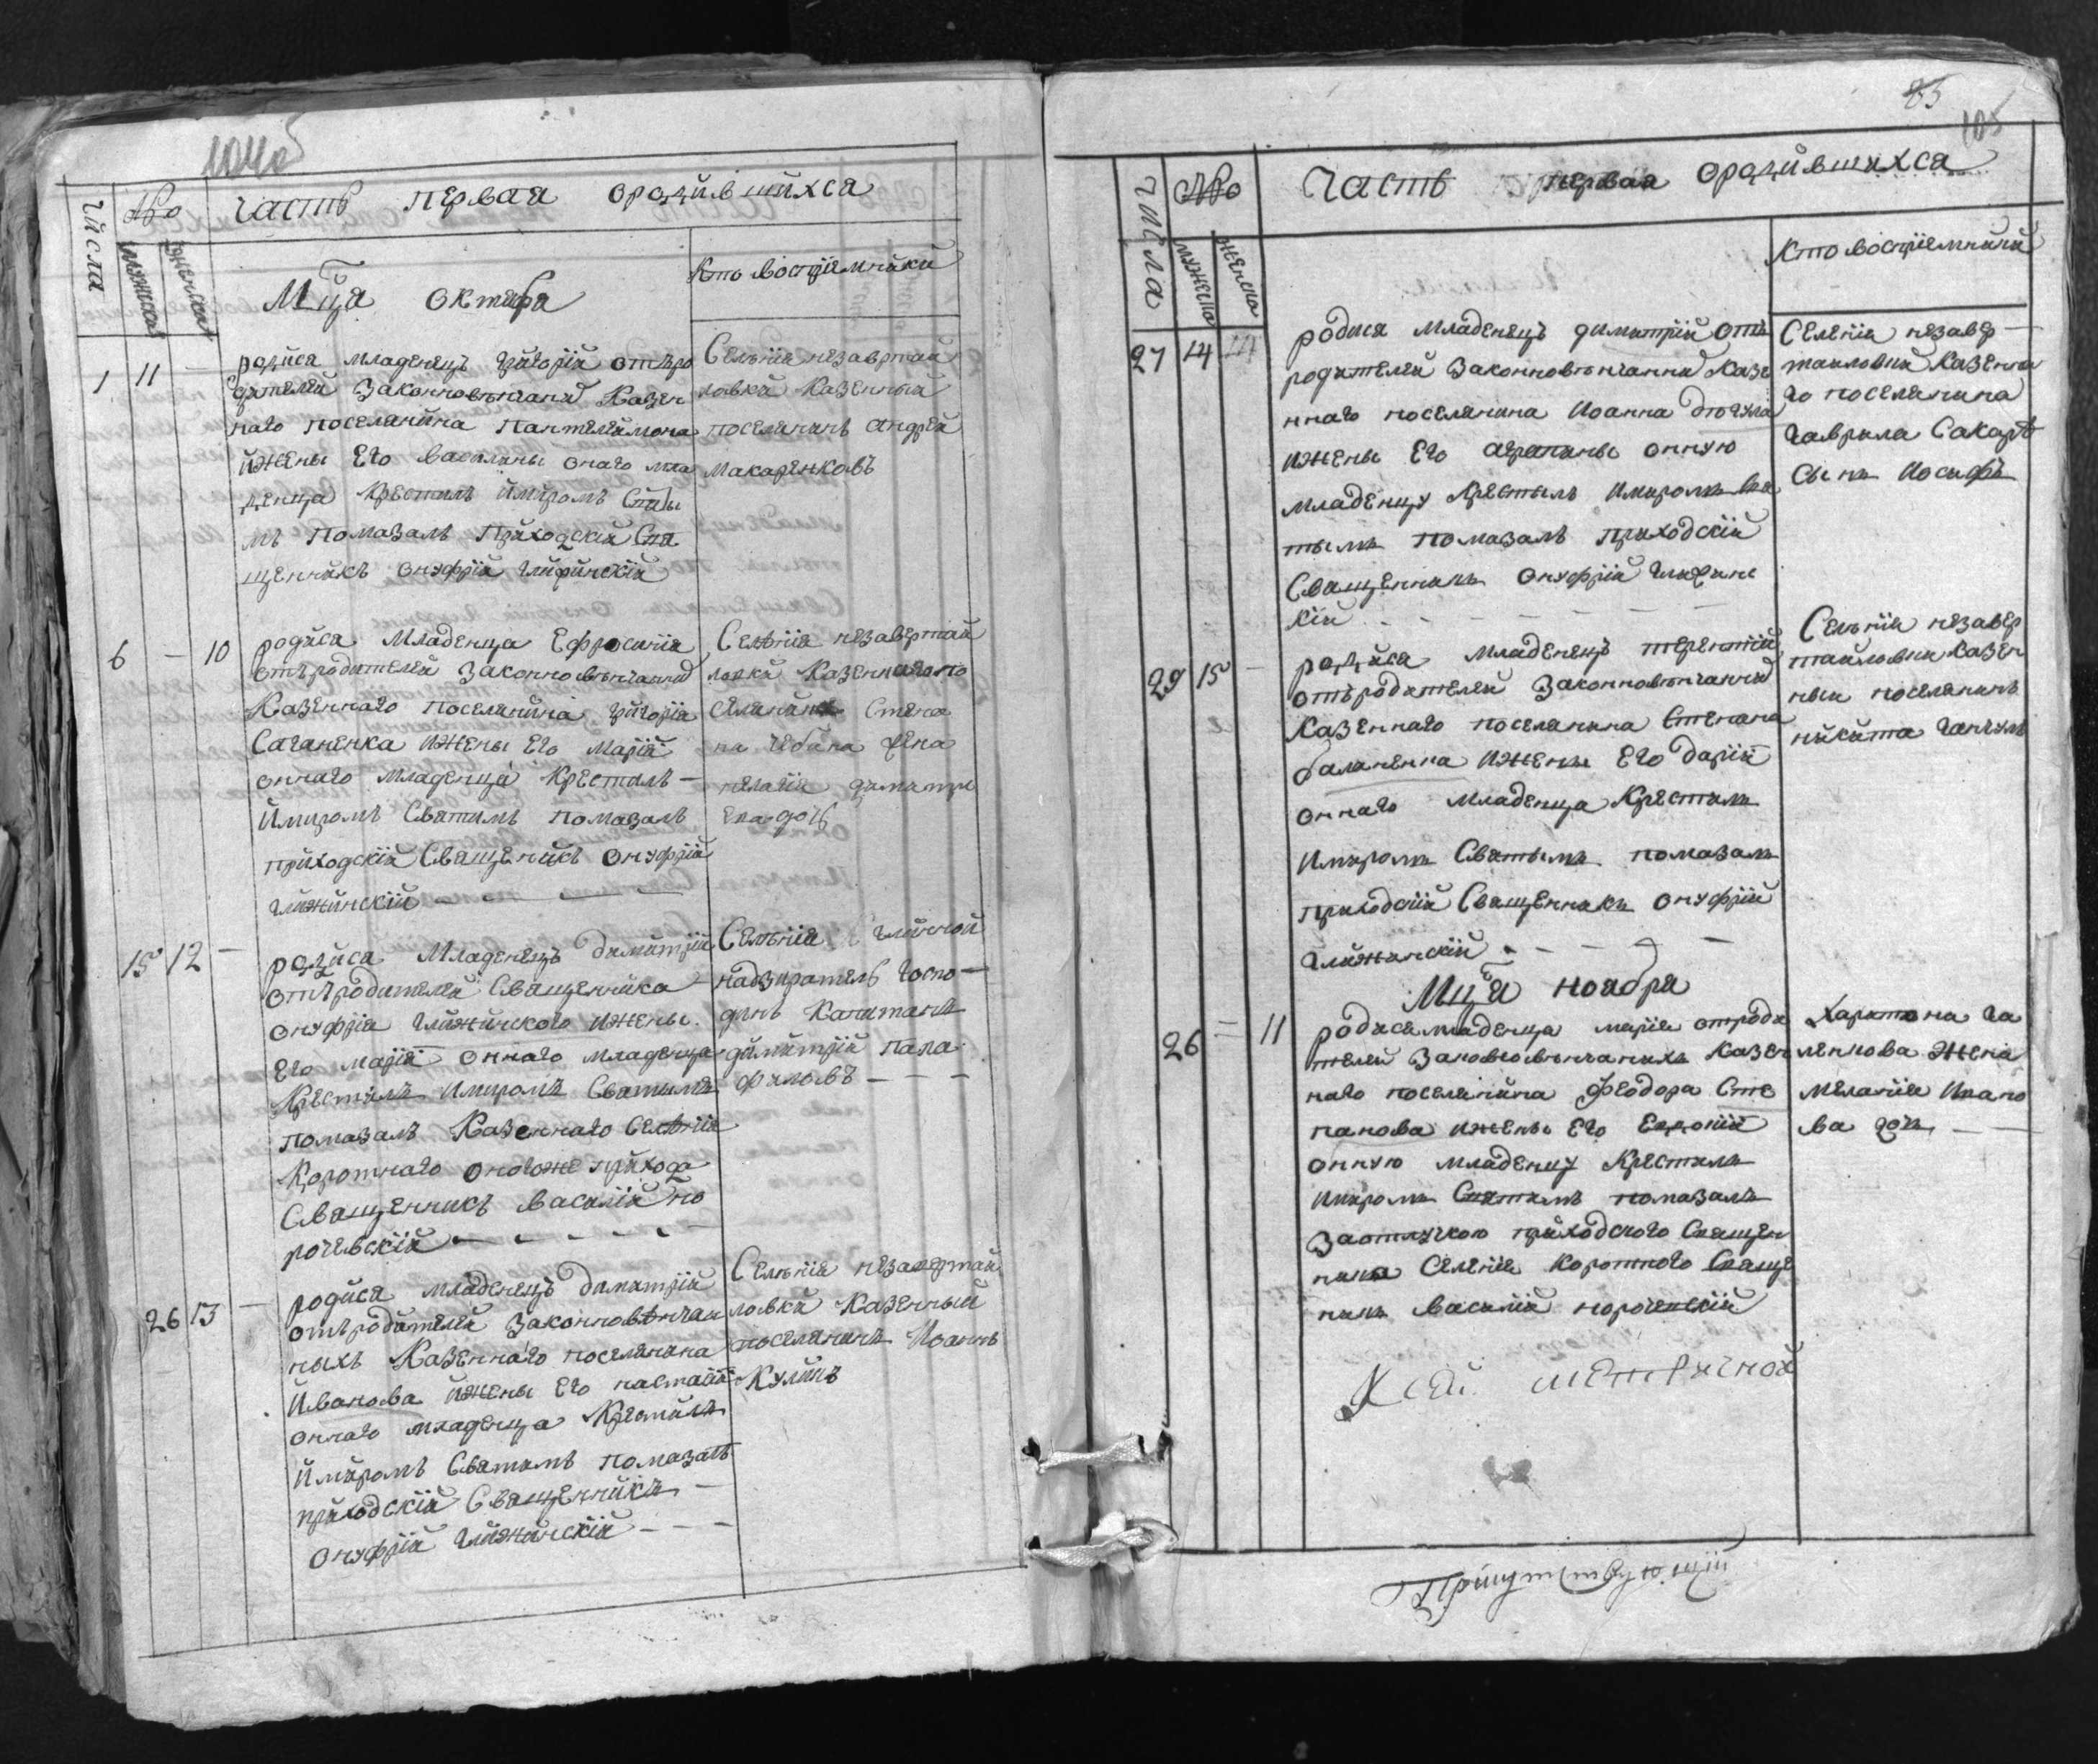 104об
Числа № Часть первая ородившихса
мужеска женска
Мца октября Кто восприемники
1 11 — родиса младенецъ григорій отъро
дителей Законновѣнчаных Казен
наго поселянина Пантелеимона
ижены Его василины онаго мла
денца Крестилъ имиромъ Святы
мъ помазалъ Приходскій Свя
щенникъ онуфрій
Селѣнія незаертай
ловки Казенный
поселянинъ андрей
Макаренковъ
6 — 10 родиса Младенца Ефросинія
отъродителей Законновѣнчанных
Казеннаго поселянина григорія
Саганенка ижены Его Маріи
оннаго младенца Крестилъ —
имиромъ Святимъ помазалъ
приходскій Священикъ онуфрій
Глижинскій — — —
Селѣнія незавертай
ловки Казеннагопо
селянина Степа
на Чебана жена
пелагія димитри
ева дочь
15 12 — родиса Младенецъ Димитрій
отъродителей Священника
онуфрія Глижинского ижены
Его маріи оннаго младенца
Крестилъ имиромъ Святимъ
помазалъ Казеннаго Селѣнія
Коротнаго оногоже прихода
Священникъ василій по
рочевскій — — — — —
Селѣнія Глинной
надзиратель госпо—
динъ Капитанъ
димитрій пана
филовъ — — —
26 13 — родиса младенецъ Димитрій
отъродителей Законновѣнчан
ныхъ Казеннаго поселянина
Иванова ижены Его настасіи
оннаго младенца Крестилъ
имиромъ Святимъ помазалъ
приходскій Священникъ —
онуфрій Глижинскій — — —
Селѣнія незавертай
ловки Казенный
поселянинъ Иоаннъ
Куликъ
83
105
Числа № Часть первая ородившихса
мужеска женска
Кто восприемники
27 14 родися младенецъ димитрій отъ
родителей Законновѣнчанных Казе
ннаго поселянина Иоанна
ижены Его аграпины онную
младенцу Крестилъ имиромъ Свя
тымъ помазалъ приходскій
Священникъ онуфрій Глижинс
кій — — — — —
Селенія незавер—
тайловки Казенна
го поселянина
гаврила Сакарѣ
Сынъ Иосифъ
29 15 — родиса младенецъ терентій
отъродителей Законновѣнчанных
Казеннаго поселянина Степана
баланенка ижены Его Даріи
оннаго младенца Крестилъ
имиромъ Святымъ помазалъ
приходскій Священникъ онуфрій
Глижинскій — — — —
Селѣнія незавер
тайловки Казен
ный поселянинъ
никита
Мца ноября
26 — 11 родиса младенца марія отроди
телей Законновѣнчаныхъ Казен
наго поселянина Феодора Сте
панова ижены Его Евдокіи
онную младенцу Крестилъ
имиромъ Святимъ помазалъ
Заотлучкою приходского Священ
ника Селенія Коротного Свяще
никъ василій порочевскій
Харитона га
ленкова Жена
меланія Ивано
ва дочь — —
К сей метричной
Присутствующій